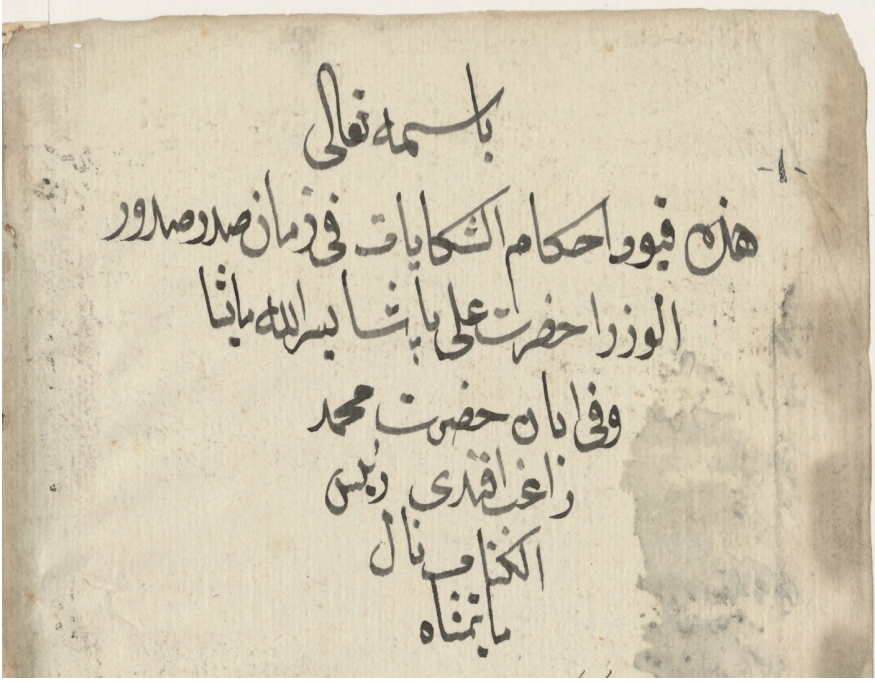 باسمه تعالى
-١-
هذه قيود احكام الشكايات فى زمان صدر صدور
الوزرا حضرت على پاشا يسر الله ما يشا
وفى ابان حضرت محمد
راغب افندى رئيس
الكتاب نال
ما يتمناه